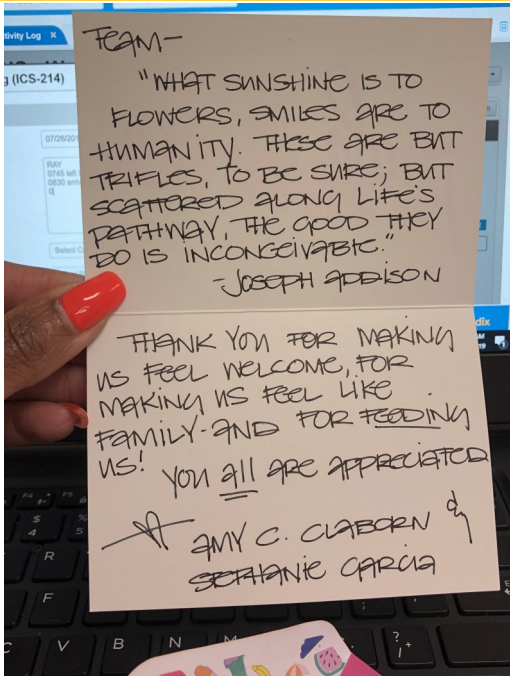 tivity Log x
g (ICS-214)
07/26/201
RAY
0745 left
0830 arri
0
Select C
dix
TEAM-
"WHAT SUNSHINE IS TO
FLOWERS, SMILES ARE TO
HUMANITY. THESE ARE BUT
TRIFLES, TO BE SURE; BUT
SCATTERED ALONG LIFE'S
PATHWAY, THE GOOD THEY
DO IS INCONCEIVABLE."
-JOSEPH ADDISON
THANK YOU FOR MAKING
US FEEL WELCOME, FOR
MAKING US FEEL LIKE
FAMILY-AND FOR FEEDING
US!
YOU all ARE APPRECIATED
AMY C. CLABORN
STEPHANIE GARCIA
F4 F5
$ %
4 5
R
F
C V B N M
?
/